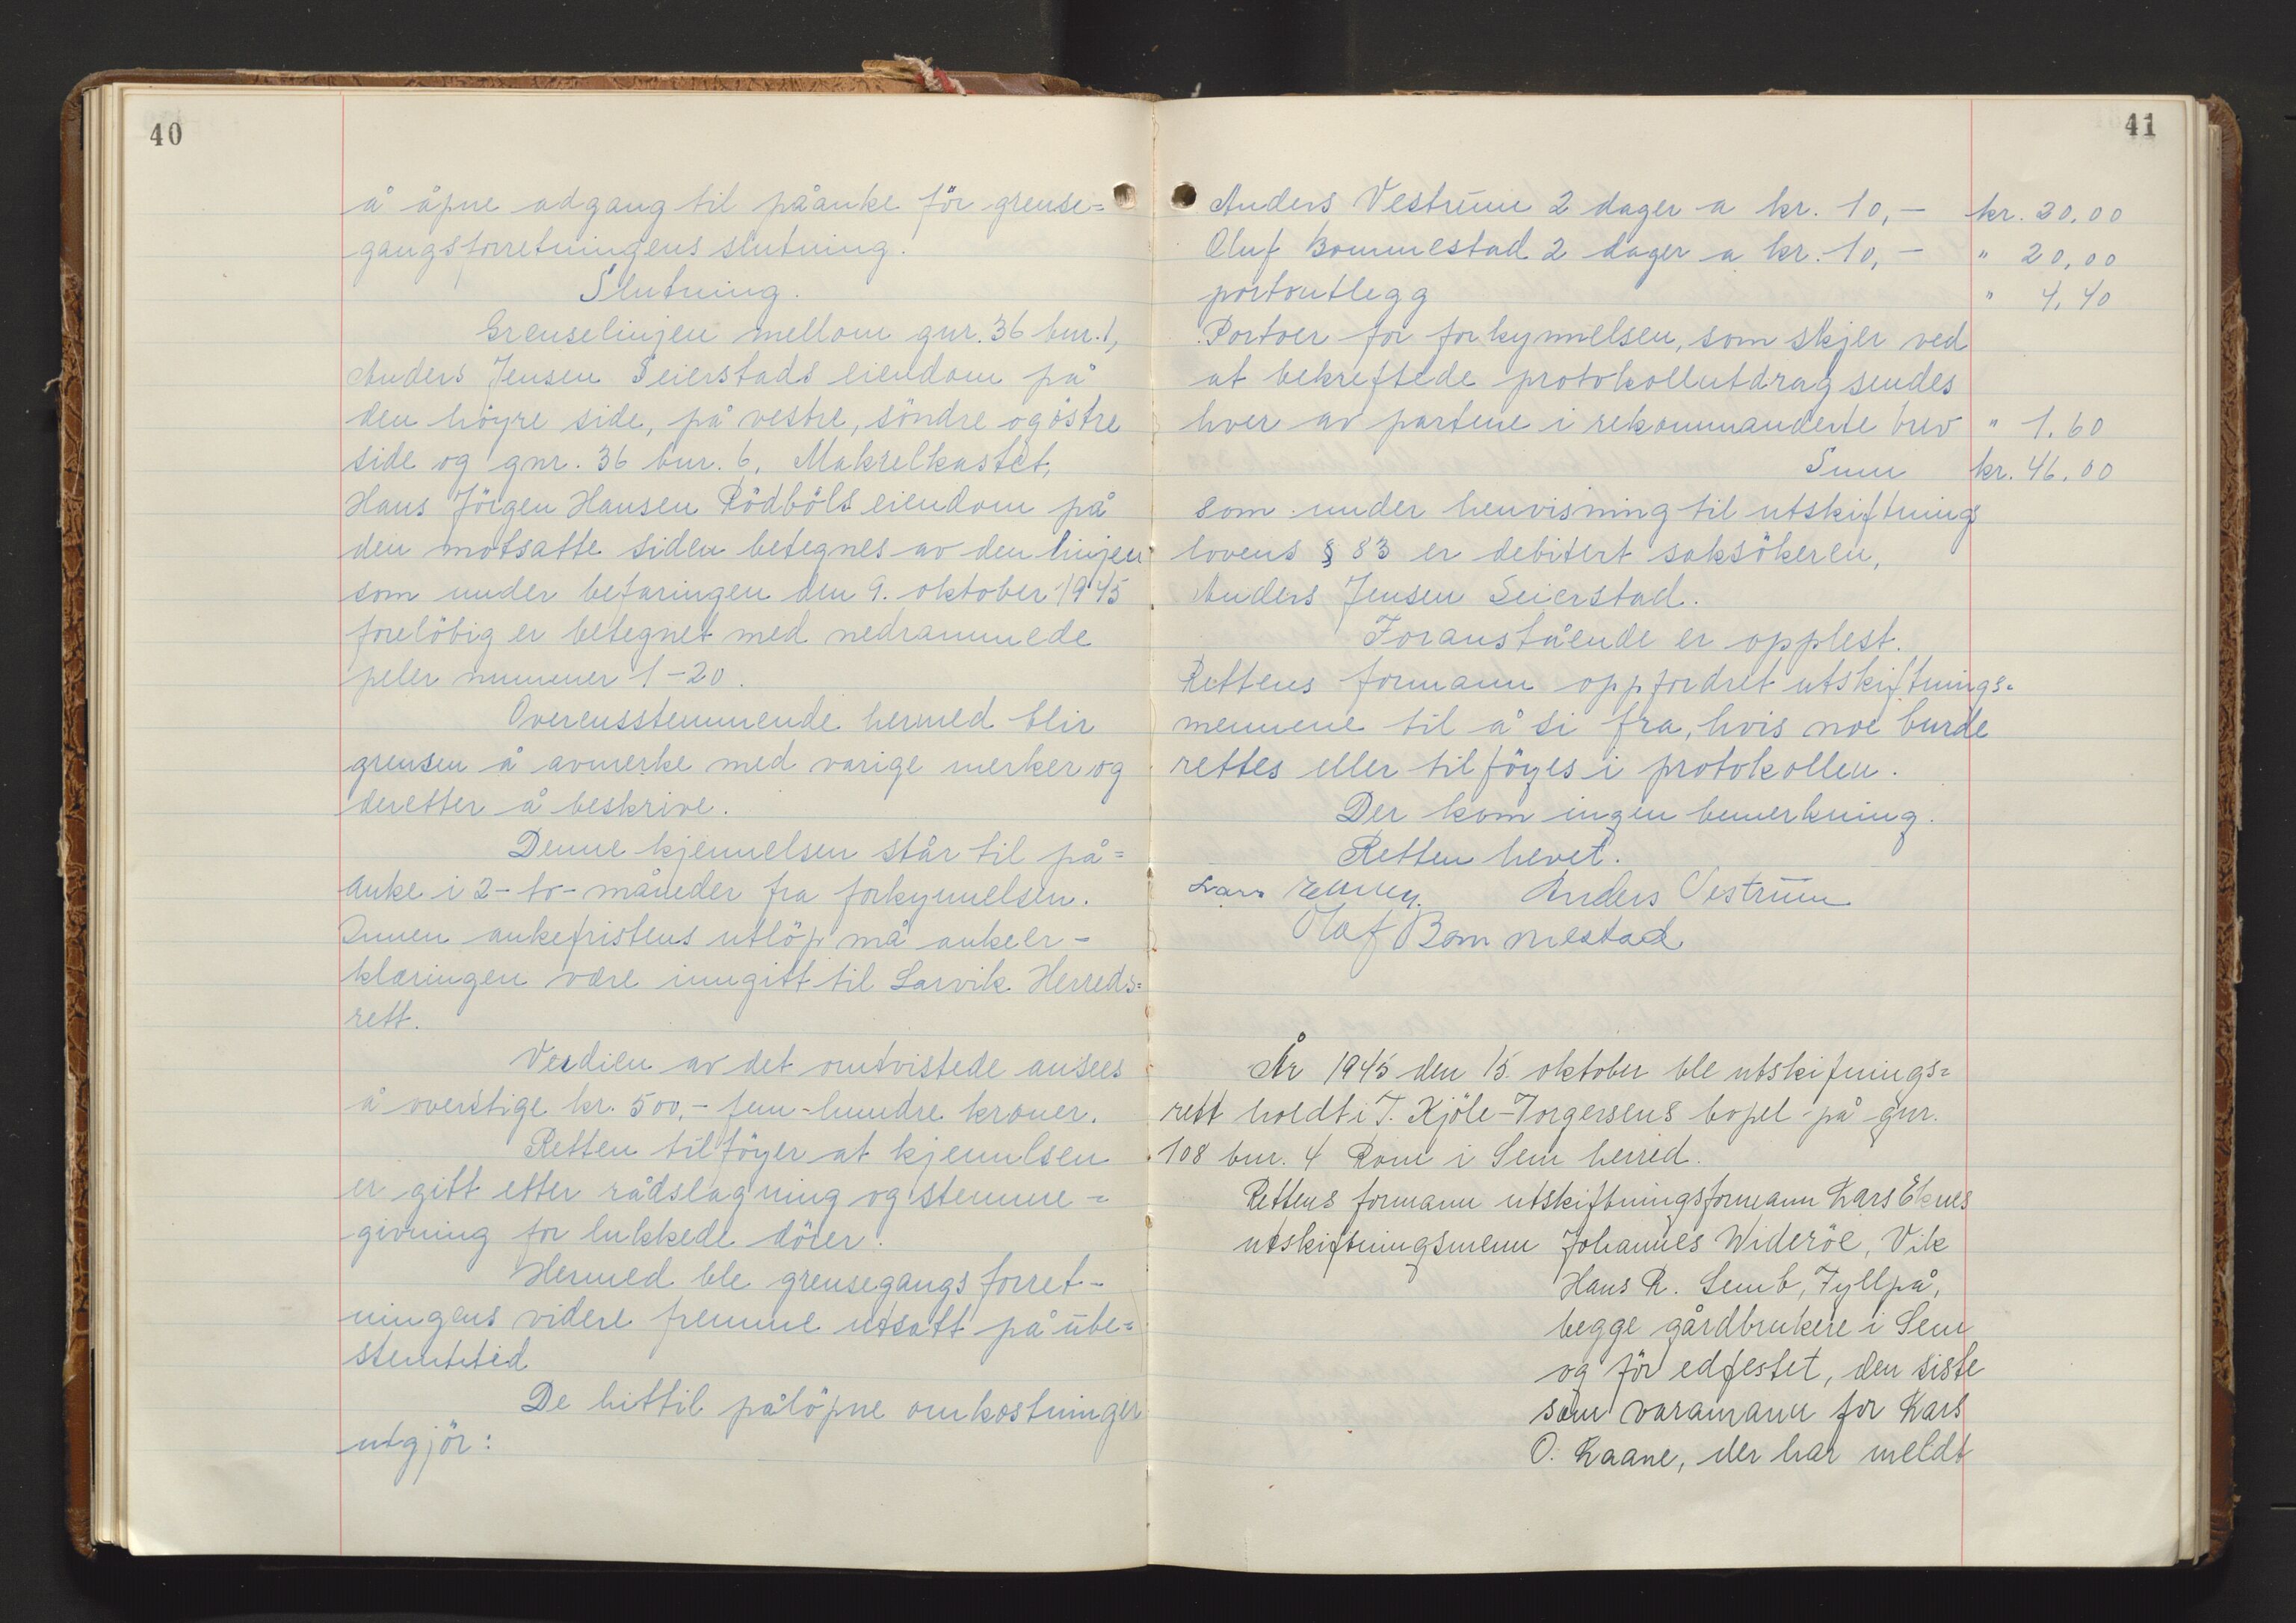 40
å åpne adgang til påanke før grense=
gangsforretningens slutning.
Slutning.
Grenselinjen mellom gnr. 36 bnr. 1,
Anders Jensen Seierstads eiendom på
den höyre side, på vestre, söndre og östre
side og gnr. 36 bnr. 6, Makrelkastet,
Hans Jörgen Hansen Rödböls eiendom på
den motsatte siden betegnes av den linjen
som under befaringen den 9. oktober 1945
forelöbig er betegnet med nedrammede
peler nummer 1-20.
Overensstemmende hermed blir
grensen å avmerke med varige merker og
deretter å beskrive.
Denne kjennelsen står til på=
anke i 2-to-måneder fra forkynnelsen.
Innen ankefristens utlöp må ankeer-
klæringen være inngitt til Larvik Herreds=
rett.
Verdien av det omtvistede ansees
å overstige kr. 500,- fem-hundre kroner.
Retten tilföyer at kjennelsen
er gitt etter rådslagning og stemme=
givning for lukkede dörer.
Hermed ble grensegangsforret-
ningens videre fremme utsatt på ube=
stemt tid
De hittil pålöpne omkostninger
utgjör:
41
Anders Vestrum 2 dager a kr. 10,- kr. 20.00
Oluf Bommestad 2 dager a kr. 10,- " 20,00
portoutlegg " 4,40
Portoer for forkynnelsen, som skjer ved
at bekreftede protokollutdrag sendes
hver av partene i rekommanderte brev " 1.60
Sum kr. 46.00
som under henvisning til utskiftnings
lovens § 83 er debitert saksökeren,
Anders Jensen Seierstad.
Foranstående er opplest.
Rettens formann oppfordret utskiftnings=
mennene til å si fra, hvis noe burde
rettes eller tilföyes i protokollen.
Der kom ingen bemerkning.
Retten hevet.
Lars Anders Vestrum
Olaf Bommestad
År 1945 den 15. oktober ble utskifnings=
rett holdt i T. Kjöle-Torgersens bopel på gnr.
108 bnr. 4 Rom i Sem herred.
Rettens formann utskiftningsformann Lars Eknes
utskiftningsmenn Johannes Wideröe, Vik
Hans R. Semb, Fyllpå,
begge gårdbrukere i Sem
og för edfestet, den siste
som varamann for Lars
O. Raane, der har meldt